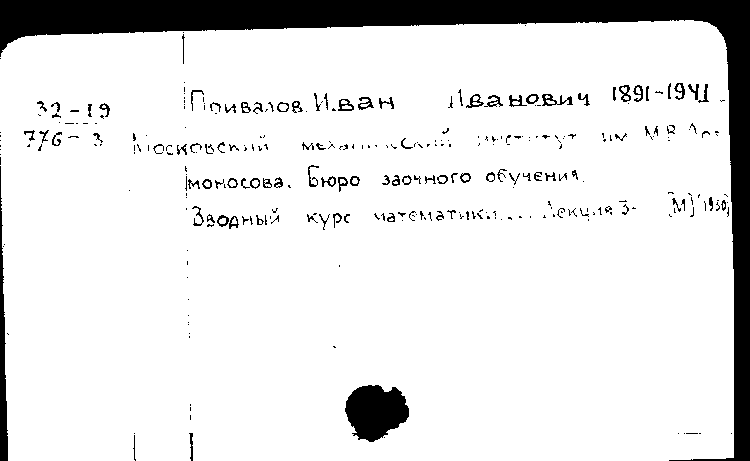 32-19 Привалов Иван Иванович 1891-1941
776-3 Московский механический институт им М.В.Ло-
моносова. Бюро заочного обучения.
Вводный курс математики... Лекция 3- [М] 1930,